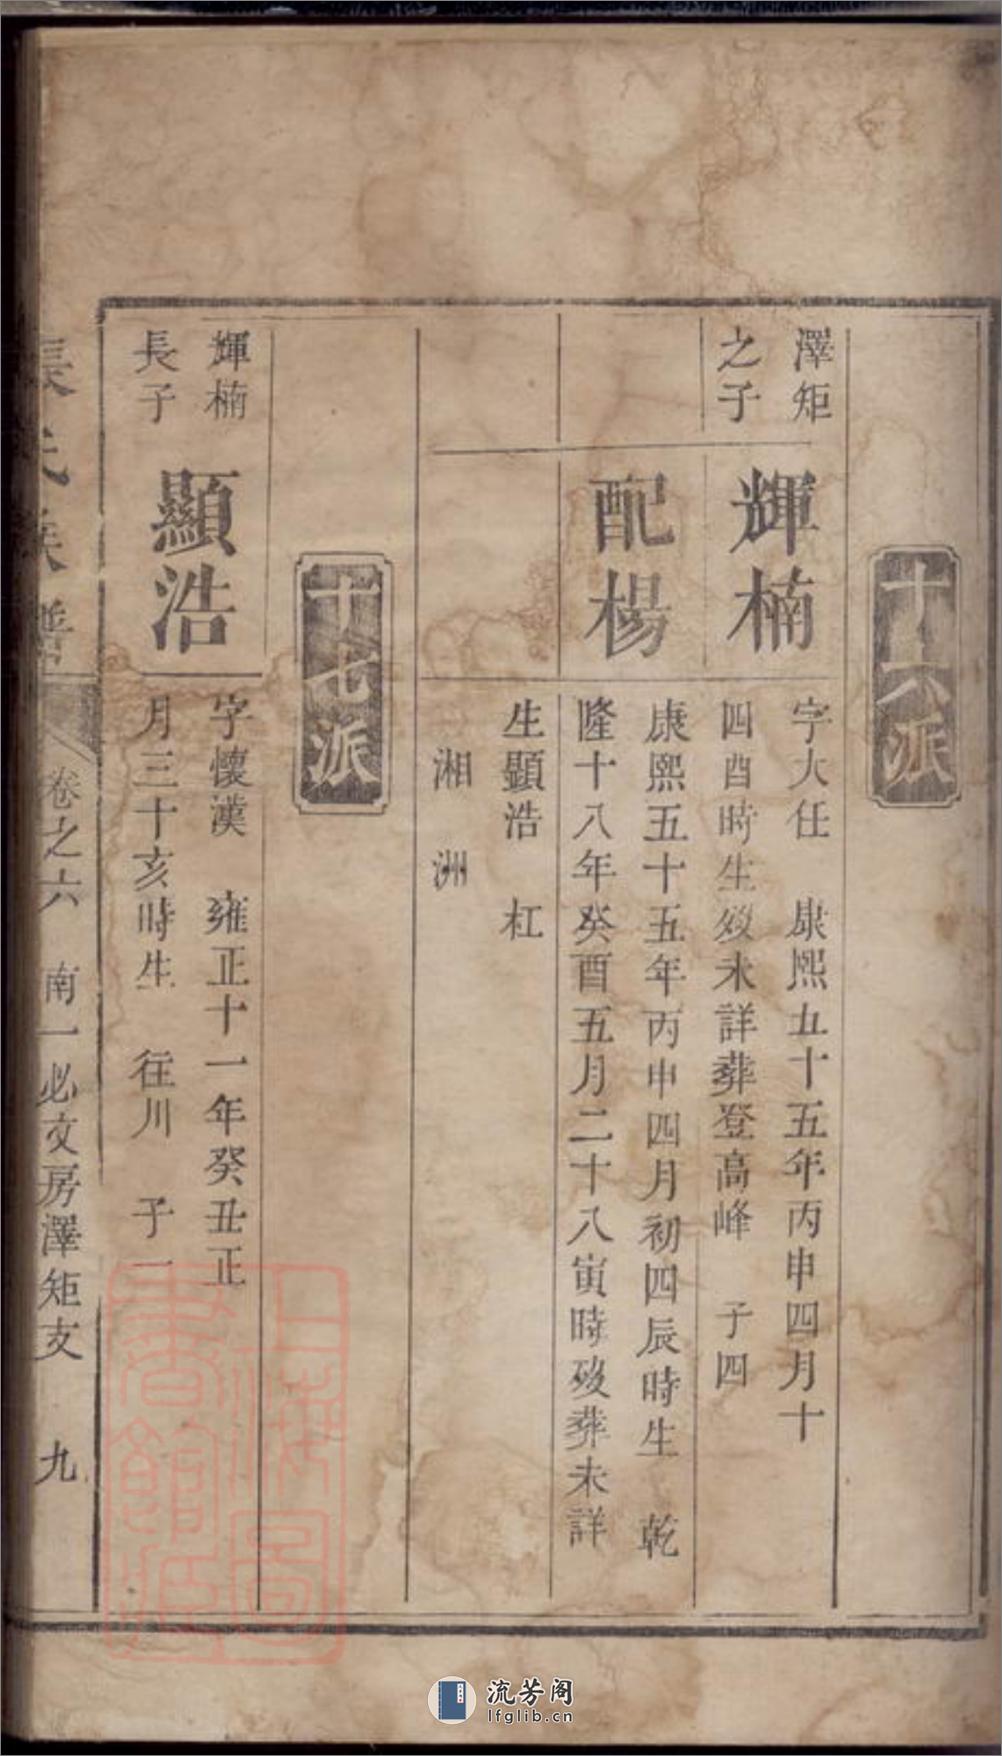 十六派
澤矩
之子
輝楠
字大任 康熙五十五年丙申四月十
四酉時生歿未詳葬登高峰 子四
配楊
康熙五十五年丙申四月初四辰時生 乾
隆十八年癸酉五月二十八寅時歿葬未詳
生顯浩 杠
湘 洲
十七派
輝楠
長子
顯浩
字懷漢 雍正十一年癸丑正
月三十亥時生 往川 子一
族譜
卷之六 南一必文房澤矩支 九
上海圖書館藏
流芳阁
lfglib.cn